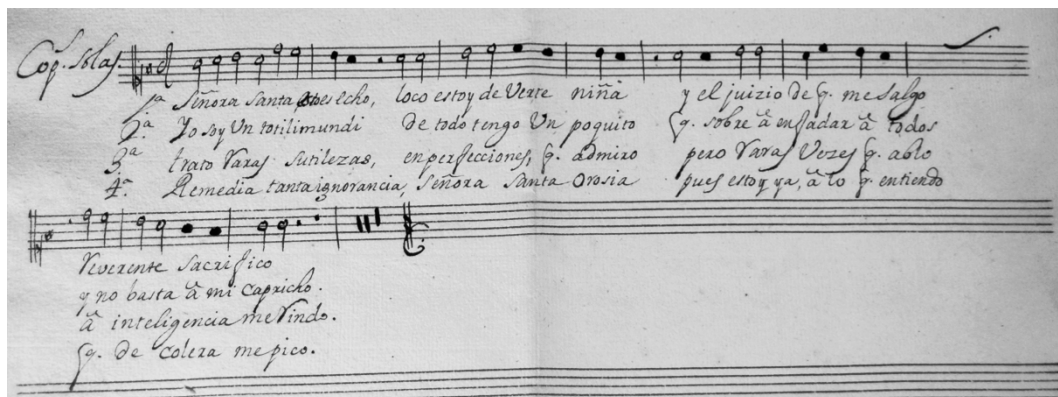 Cop.s Solas.
1.ª Señora Santa esto es echo, loco estoy de Verte niña y el juizio de q. me Salgo
2.ª Yo soy Un totilimundi de todo tengo Un poquito q. sobre â enfadar â todos
3.ª trato Varas Sutilezas, en perfecciones, q. admiro pero Varas Vezes q. ablo
4.ª Remedia tanta ignorancia, Señora Santa Orosia pues estoy ya, â lo q. entiendo
Reverente Sacrifico
y no basta â mi Capricho.
â inteligencia me Rindo.
q. de Colera me pico.